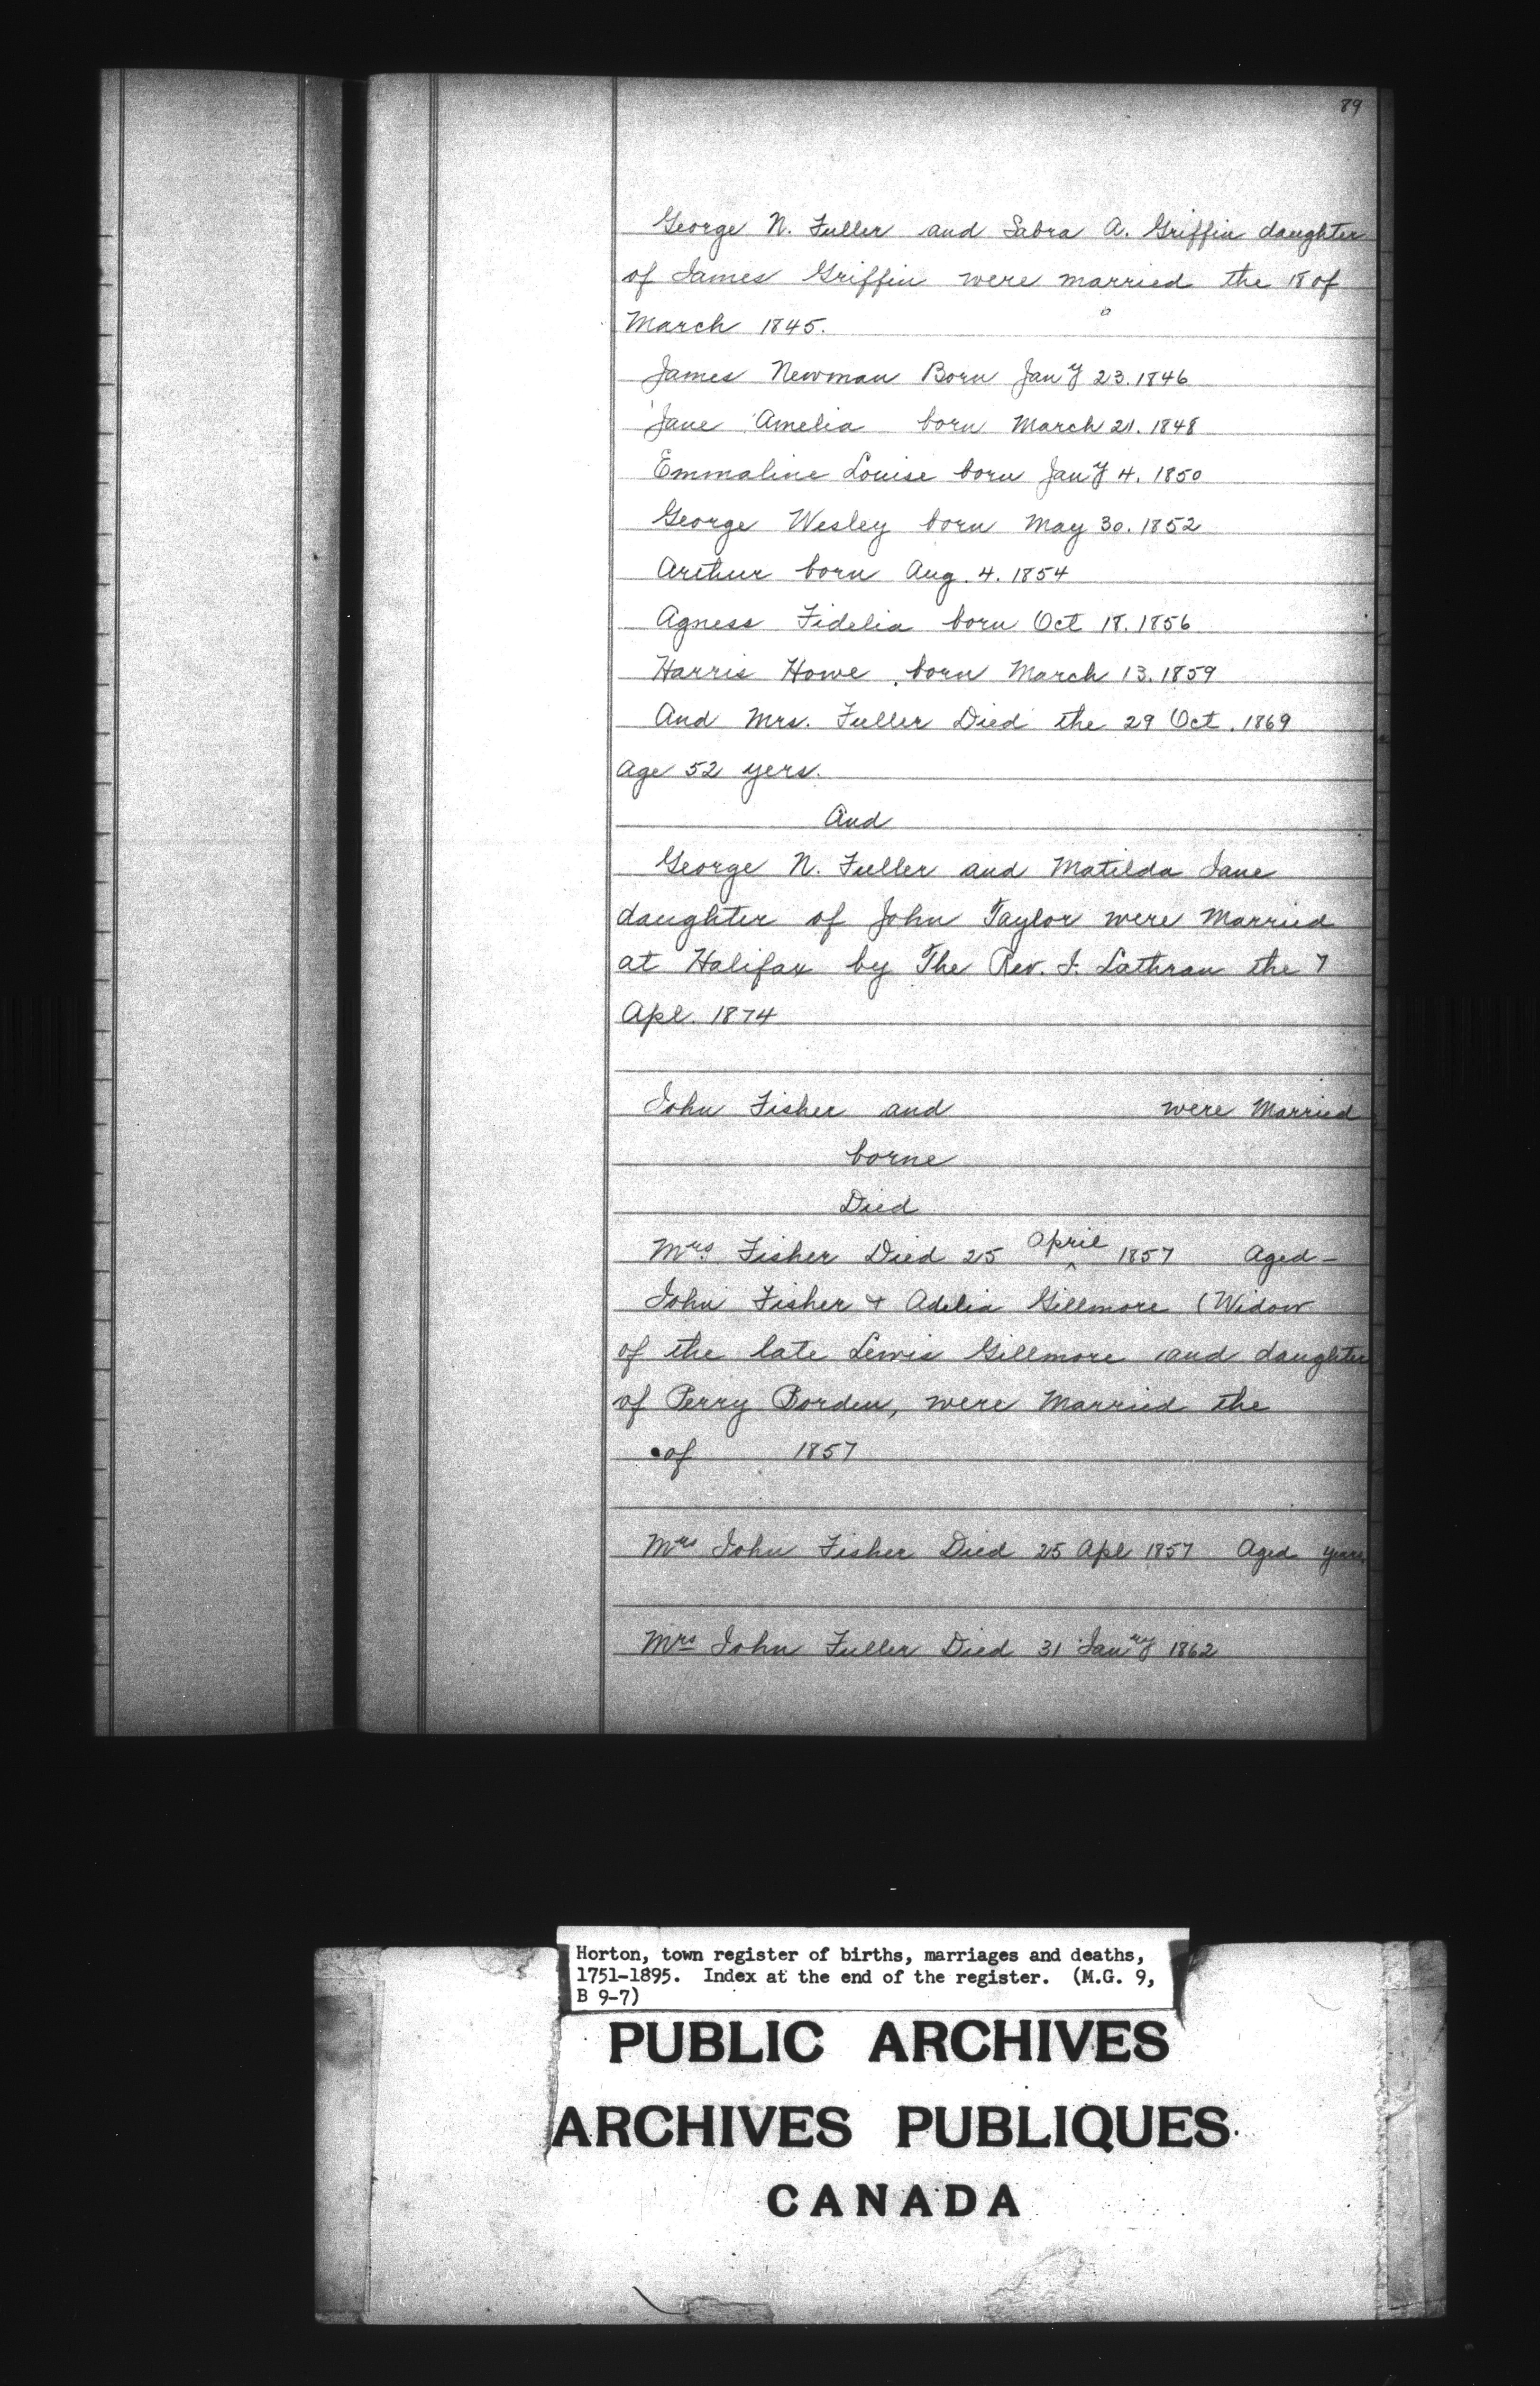 89
George N. Fuller and Sabra A. Griffin daughter
of James Griffin were married the 18 of
March 1845.
James Newman Born Jany 23. 1846
Jane Amelia born March 21. 1848
Emmaline Louise born Jany 4. 1850
George Wesley born May 30. 1852
Arthur born Aug. 4. 1854
Agness Fidelia born Oct 18. 1856
Harris Howe born March 13. 1859
And Mrs. Fuller Died the 29 Oct. 1869
age 52 yers.
And
George N. Fuller and Matilda Jane
daughter of John Taylor were Married
at Halifax by The Rev. J. Lathran the 7
Apl. 1874
John Fisher and were Married
borne
Died
Mrs Fisher Died 25 April 1857 Aged –
John Fisher + Adelia Gillmore (Widow
of the late Lewis Gillmore and daughter
of Perry Borden, were Married the
of 1857
Mrs John Fisher Died 25 Apl 1857 Aged years
Mrs John Fuller Died 31 Janry 1862
Horton, town register of births, marriages and deaths,
1751-1895. Index at the end of the register. (M.G. 9,
B 9-7)
PUBLIC ARCHIVES
ARCHIVES PUBLIQUES
CANADA